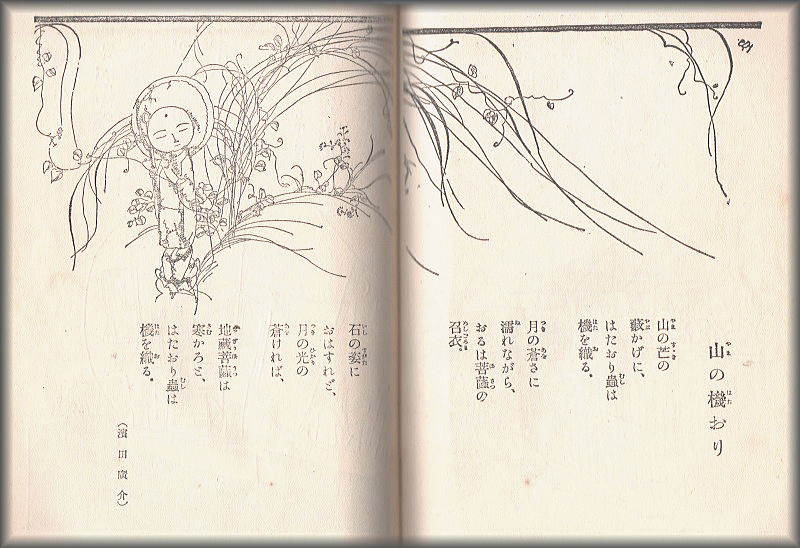 山の機おり
山の芒の
藪かげに、
はたおり蟲は
機を織る。
月の蒼さに
濡れながら、
おるは菩薩の
召衣。
石の姿に
おはすれど、
月の光の
蒼ければ、
地蔵菩薩は
寒かろと、
はたおり蟲は
機を織る。
(濱田廣介)